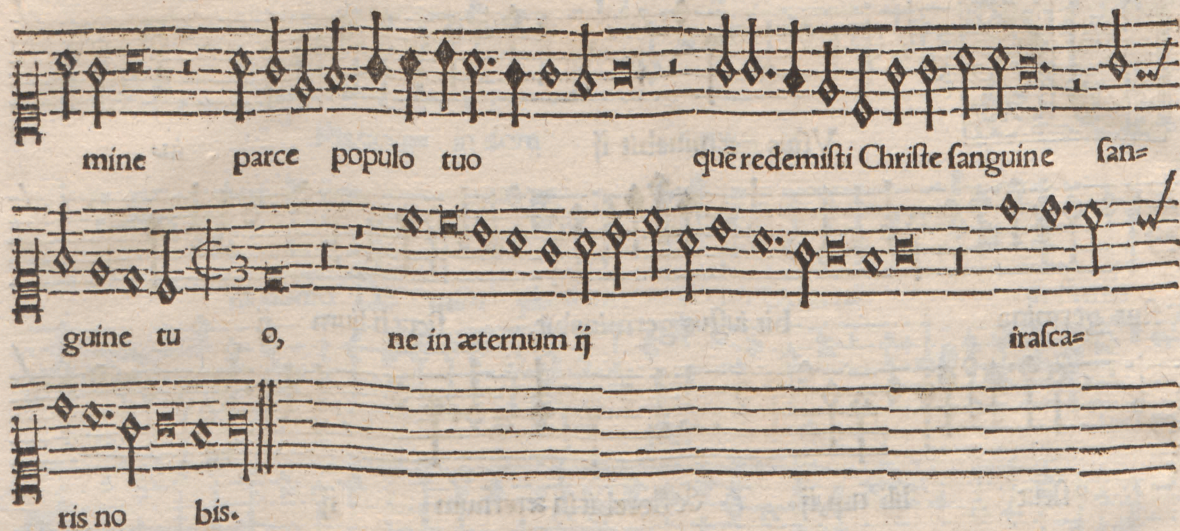 mine parce populo tuo quē redemiſti Chriſte ſanguine ſan=
guine tu o, ne in æternum ij iraſca=
ris no bis.